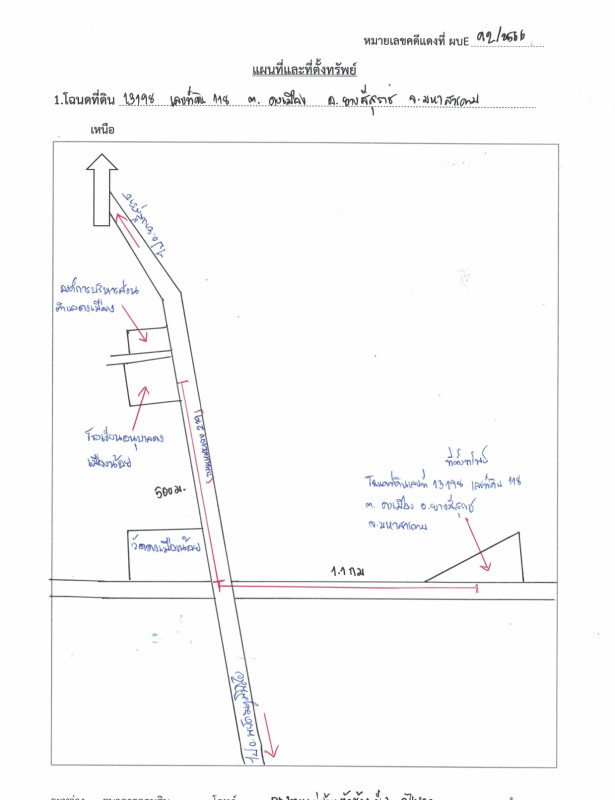 หมายเลขคดีแดงที่ ผบE ๑๒/๒๕๖๖
แผนที่และที่ตั้งทรัพย์
1.โฉนดที่ดิน 13198 เลขที่ดิน 118 ต. ดงเมือง อ. ยางสีสุราช จ. มหาสารคาม
เหนือ
ไป อ.
องค์การบริหารส่วน
ตำบลดงเมือง
โรงเรียนอนุบาลดง
เมืองน้อย
500 ม.
วัดดงเมืองน้อย
1.1 กม
ที่ตั้งทรัพย์
โฉนดที่ดินเลขที่ 13198 เลขที่ดิน 118
ต. ดงเมือง อ.ยางสีสุราช
จ.มหาสารคาม
ไป อ.